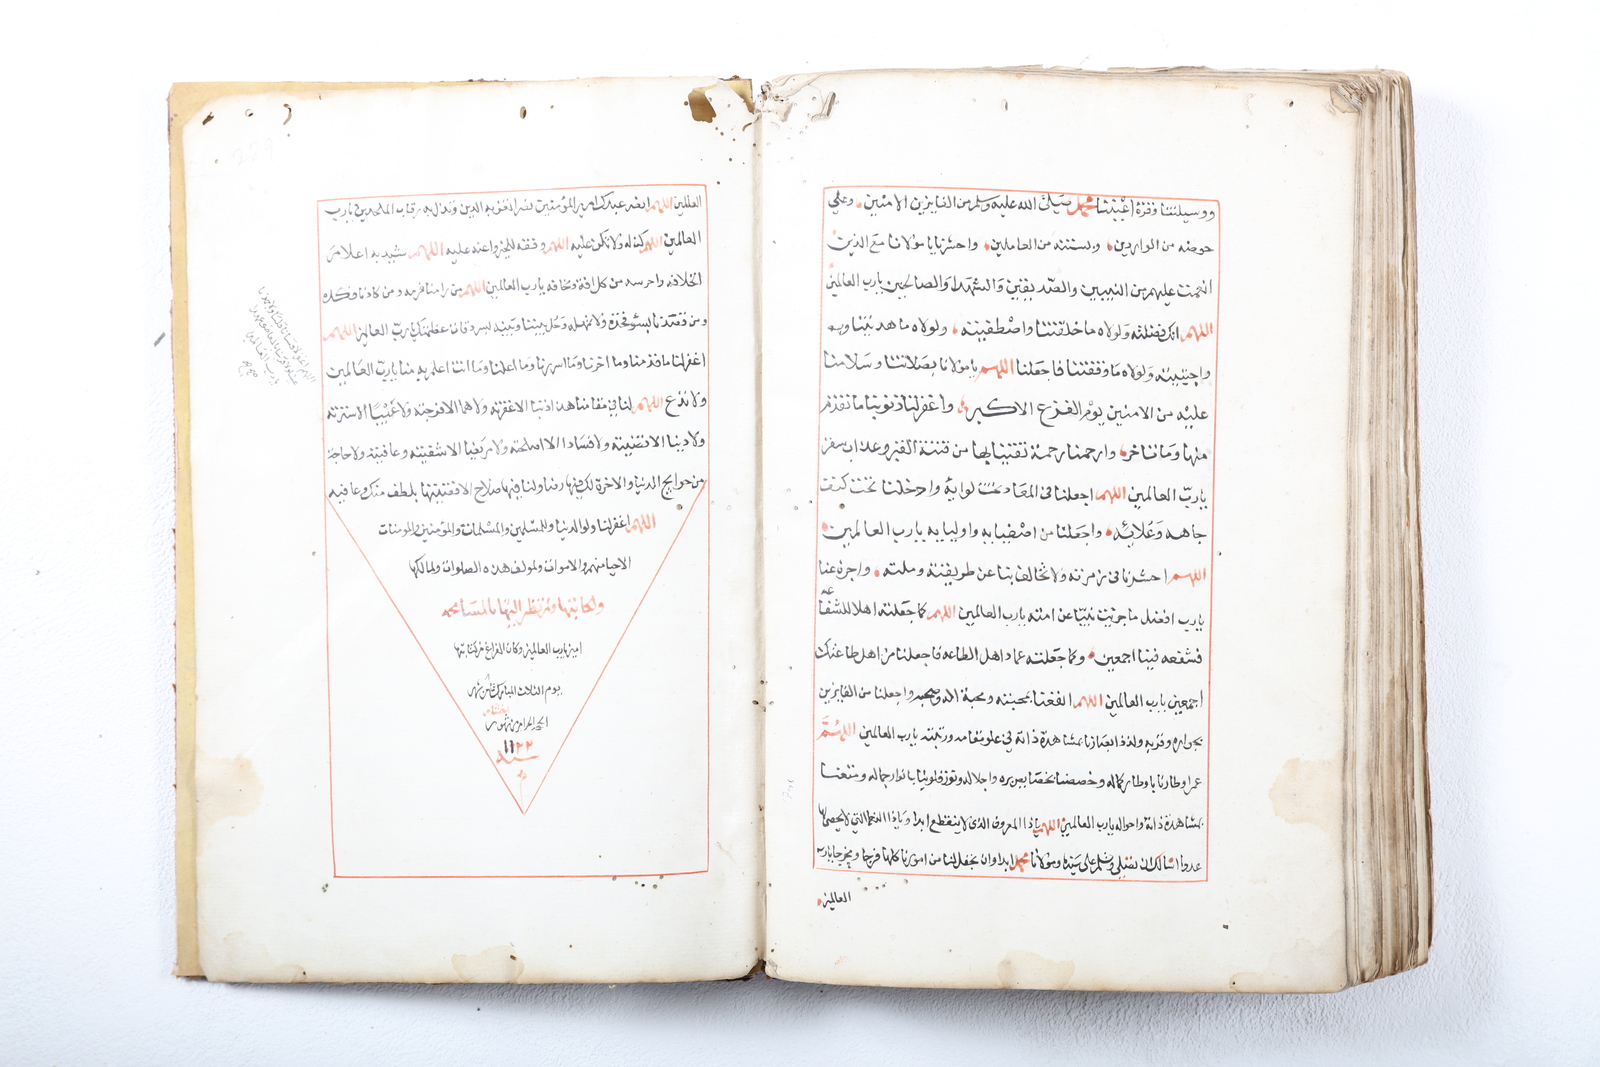 ووسيلتنا وقرة اعيننا محمد صلى الله عليه وسلم من الفايزين الامنين وعلى
حوضه من الواردين وبسنته من العاملين واحشرنا يا مولانا مع الذين
انعمت عليهم من النبيين والصديقين والشهدا والصالحين يارب العالمين
اللهم انك فضلته ولولاه ما خلقتنا واصطفيته ولولاه ما هديتنا وبه
واجتبيته ولولاه ما وفقتنا فاجعلنا اللهم يا مولانا بصلاتنا وسلامنا
عليه من الامنين يوم الفزع الاكبر واغفر لنا ذنوبنا ما تقدم
منها وما تأخر وارحمنا رحمة تقينا بها من فتنة القبر وعذاب سقر
يارب العالمين اللهم اجعلنا في المعاد تحت لوايه وادخلنا تحت كنف
جاهه وعلائه واجعلنا من اصفيايه واوليايه يارب العالمين
اللهم احشرنا في زمرته ولا تخالف بنا عن طريقته وملته واجزه عنا
يارب افضل ما جزيت نبيا عن امته يارب العالمين اللهم كما جعلته اهلا للشفاعة
فشفعه فينا اجمعين وكما جعلته عماد اهل الطاعه فاجعلنا من اهل طاعتك
اجمعين يارب العالمين اللهم انفعنا بمحبته ومحبة اله وصحبه واجعلنا من الفايزين
بجواره وقربه ولذذ ابصارنا بمشاهدة ذاته في علو مقامه ورتبته يارب العالمين اللهم
عمر اوطارنا باوطار كماله وخصصنا بخصايص بره واجلاله ونور قلوبنا بانوار جماله ومتعنا
بمشاهدة ذاته واحواله يارب العالمين اللهم ياذا المعروف الذي لا ينقطع ابدا وياذا النعما التي لا يحصى لها
عددا اسالك ان تصلي وتسلم على سيدنا ومولانا محمد ابدا وان تجعل لنا من امورنا كلها فرجا ومخرجا يارب
العالمين
العالمين اللهم انصر عبدك امير المؤمنين نصرا تعز به الدين وتذل به رقاب الملحدين يارب
العالمين اللهم كن له ولا تكن عليه اللهم وفقه للخير واعنه عليه اللهم شيد به اعلام
الخلافه واحرسه من كل افة ومخافه يارب العالمين اللهم من رامنا فرمه ومن كادنا فكده
ومن قصدنا بسوء فخذه ولا تمهله وحل بيننا وبينه يارب العالمين اللهم
اغفر لنا ما قدمنا وما اخرنا وما اسررنا وما اعلنا وما انت اعلم به منا يارب العالمين
ولا تدع اللهم لنا في مقامنا هذا ذنبا الا غفرته ولا هما الا فرجته ولا عيبا الا سترته
ولا دينا الا قضيته ولا فسادا الا اصلحته ولا مريضا الا شفيته وعافيته ولا حاجة
من حوايج الدنيا والاخرة لك فيها رضا ولنا فيها صلاح الا قضيتها بلطف منك وعافيه
اللهم اغفر لنا ولوالدينا وللمسلمين والمسلمات والمؤمنين والمومنات
الاحيا منهم والاموات ولمولف هذه الصلوات ولمالكها
ولكاتبها ولمن نظر اليها بالمسامحه
امين يارب العالمين وكان الفراغ من كتابتها
يوم الثلاث المبارك شهر
الحجه الحرام من شهور
سنة ١١٢٢